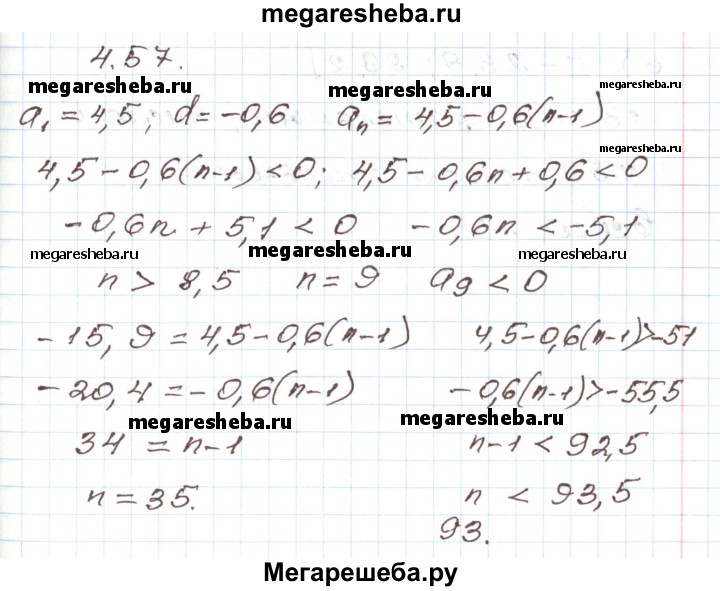 megaresheba.ru
4.57.
megaresheba.ru megaresheba.ru megaresheba.ru
a₁ = 4,5; d = -0,6 aₙ = 4,5 - 0,6(n-1)
4,5 - 0,6(n-1) < 0; 4,5 - 0,6n + 0,6 < 0
-0,6n + 5,1 < 0 -0,6n < -5,1
megaresheba.ru megaresheba.ru megaresheba.ru
n > 8,5 n = 9 a₉ < 0
-15,9 = 4,5 - 0,6(n-1) 4,5 - 0,6(n-1) > -51
-20,4 = -0,6(n-1) -0,6(n-1) > -55,5
megaresheba.ru megaresheba.ru
34 = n-1 n-1 < 92,5
n = 35. n < 93,5
93.
Мегарешеба.ру